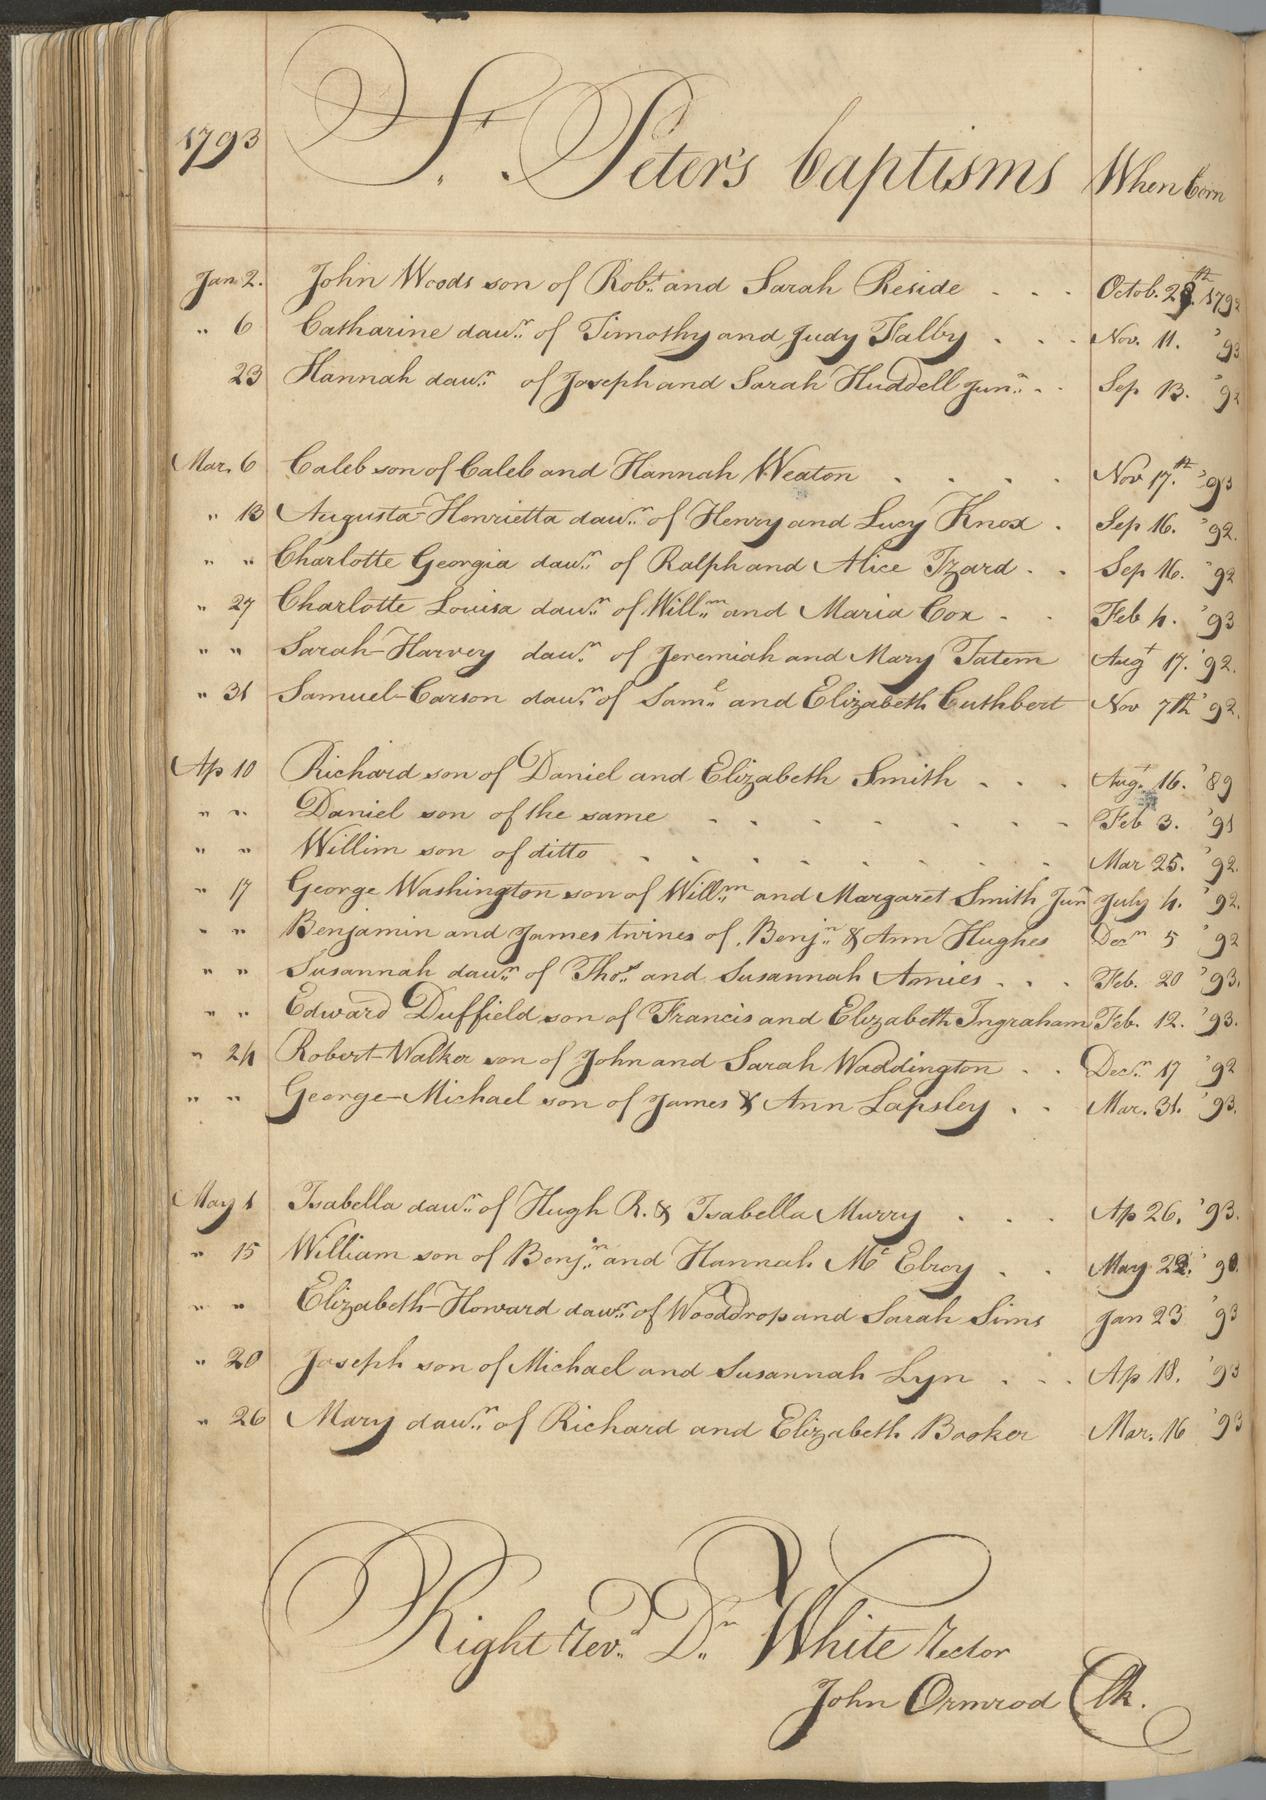 1793 St. Peter's baptisms When born
Jan 2. John Woods son of Robt. and Sarah Reside . . . Octob. 29th. 1792
" 6 Catharine dawr. of Timothy and Judy Falby . . . Nov. 11. '93
23 Hannah dawr. of Joseph and Sarah Huddell Junr. . . Sep 13. '92
Mar. 6 Caleb son of Caleb and Hannah Weaton . . . . Nov 17.th '91
" 13 Augusta-Henrietta dawr. of Henry and Lucy Knox . Sep 16. '92.
" " Charlotte Georgia dawr. of Ralph and Alice Izard . . Sep 16. '92
" 27 Charlotte Louisa dawr. of Willm. and Maria Cox . . Feb 4. '93
" " Sarah-Harvey dawr. of Jeremiah and Mary Tatem Augt 17. '92.
" 31 Samuel-Carson dawr. of Saml. and Elizabeth Cuthbert Nov 7th '92.
Ap 10 Richard son of Daniel and Elizabeth Smith . . . Augt. 16. '89
" " Daniel son of the same . . . . . . . . Feb 3. '91
" " Willim son of ditto . . . . . . . . Mar 25. '92.
" 17 George Washington son of Willm. and Margaret Smith Jun July 4. '92.
" " Benjamin and James twines of Benjn. & Ann Hughes Decr 5 '92
" " Susannah dawr. of Thos. and Susannah Amies . . . Feb. 20 '93.
" " Edward Duffield son of Francis and Elizabeth Ingraham Feb. 12. '93.
" 24 Robert-Walker son of John and Sarah Waddington . . Decr. 17 '92
" " George-Michael son of James & Ann Lapsley . . Mar. 31. '93.
May 1 Isabella dawr. of Hugh R. & Isabella Murry . . . Ap 26. '93.
" 15 William son of Benjn. and Hannah Mc Elroy . . May 22. '90.
" " Elizabeth-Howard dawr. of Wooddrop and Sarah Sims Jan 23 '93
" 20 Joseph son of Michael and Susannah Lyn . . . Ap 18. '93
" 26 Mary dawr. of Richard and Elizabeth Booker Mar. 16 '93
Right Revd. Dr. White Rector
John Ormrod Clk.